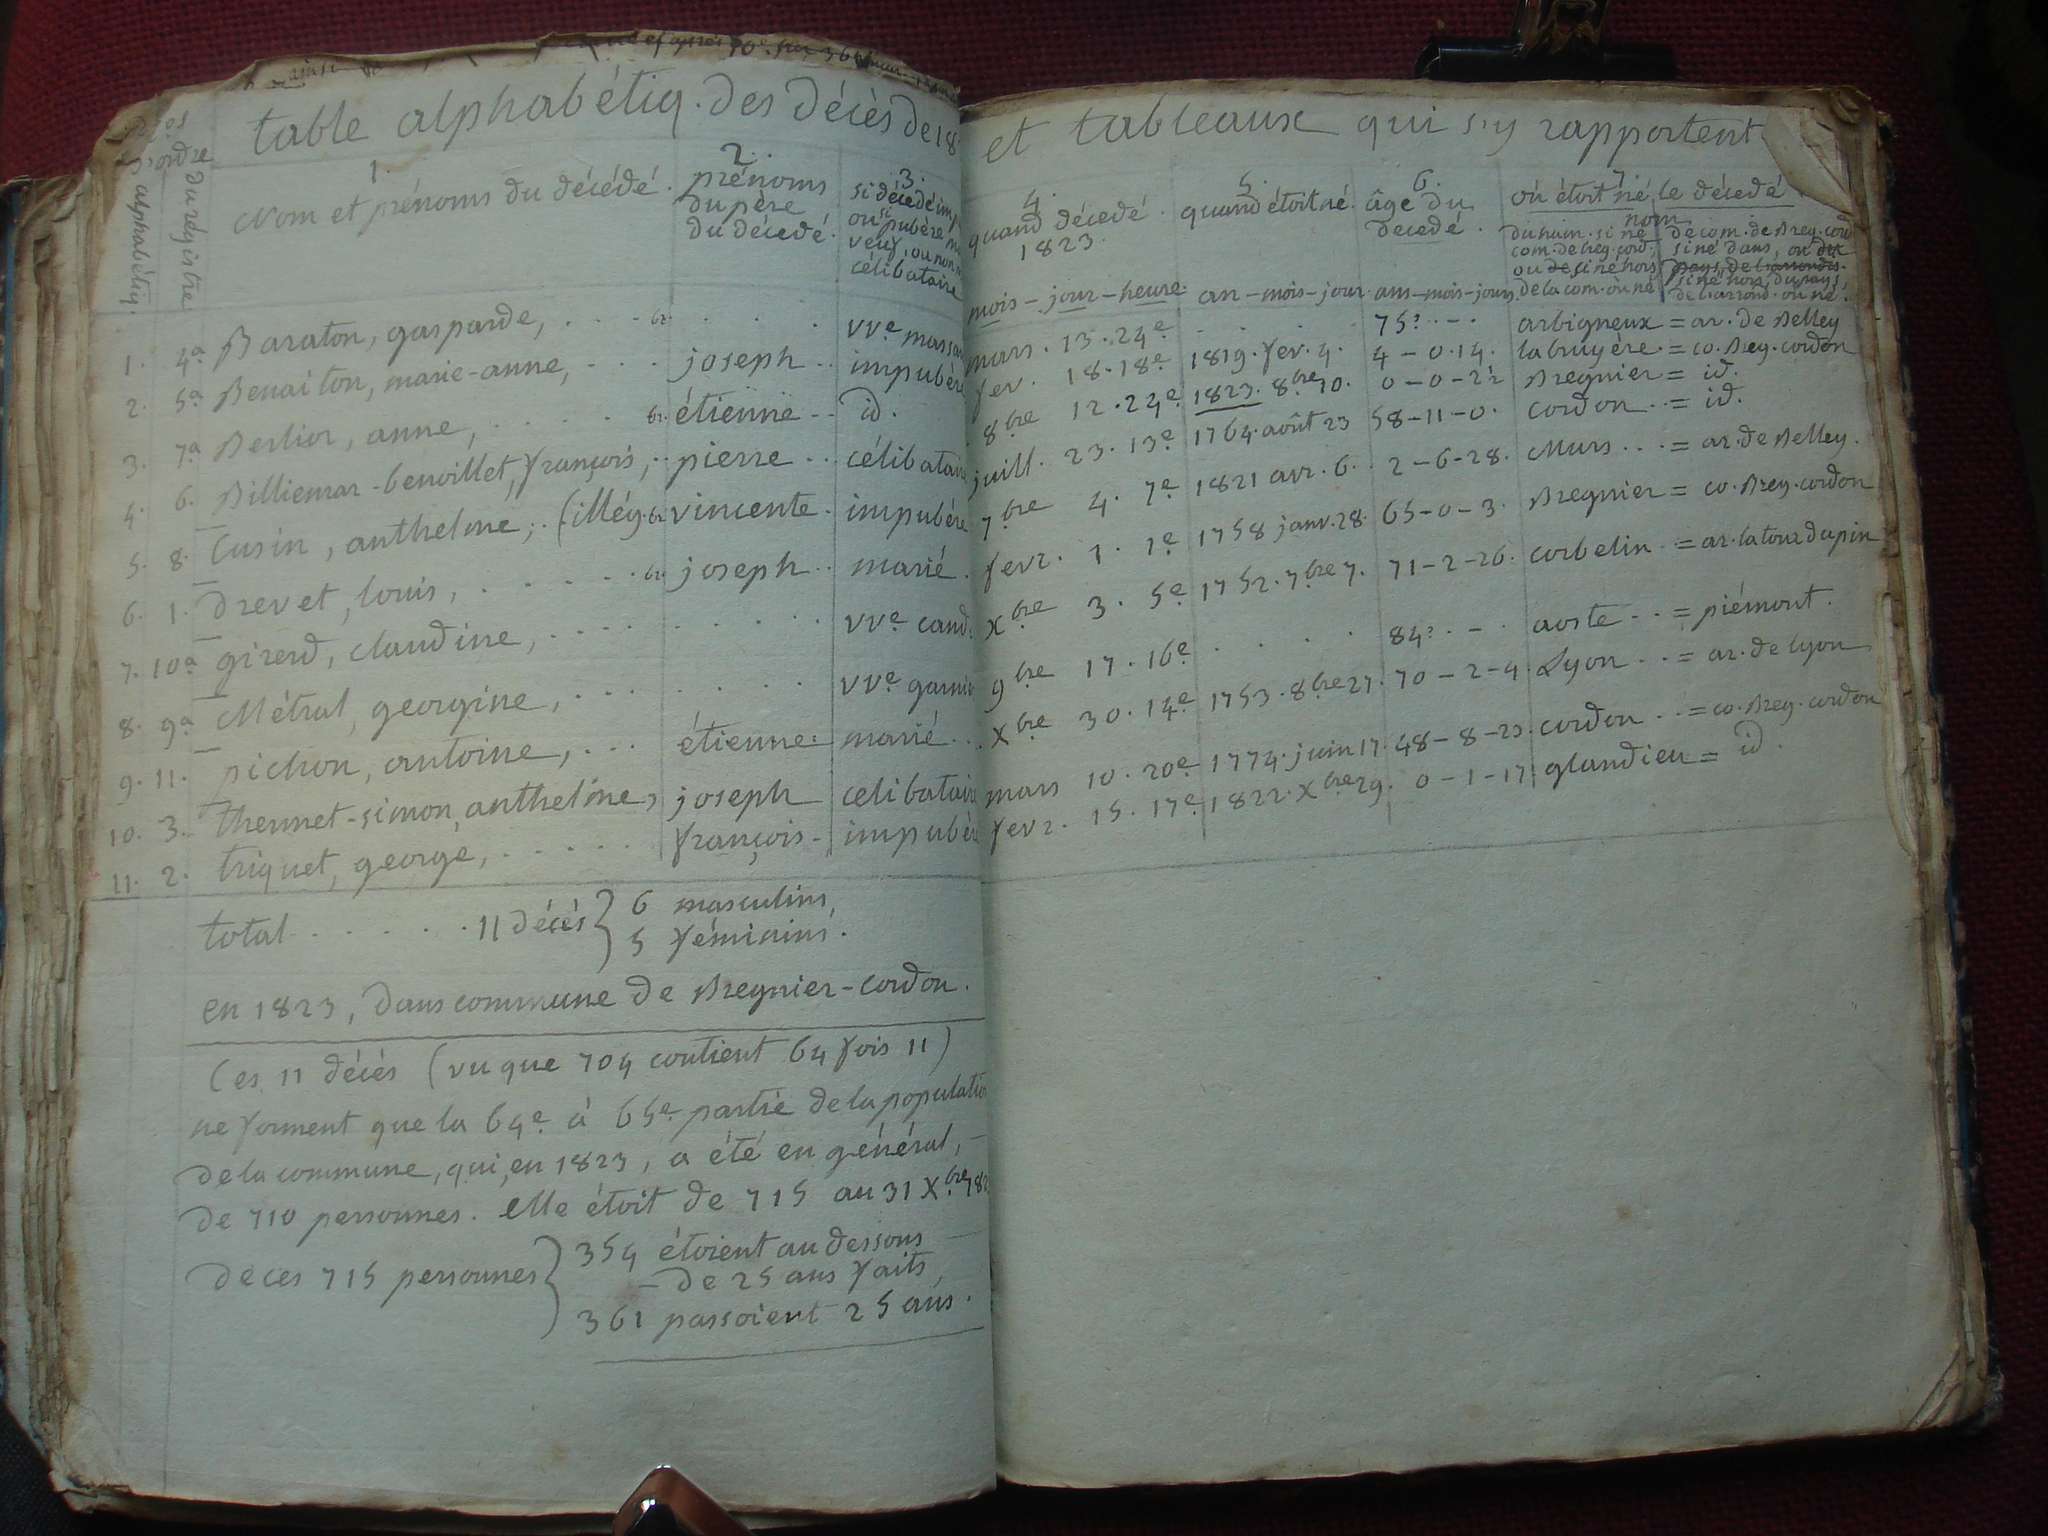 table alphabétiq. des décès de 18
n.os
d'ordre
alphabétiq.
du régistre
1.
Nom et prénoms du décédé.
2.
prénoms
du père
du décédé.
3.
si décédé imp
ou si pubère
veuf, ou non
célibataire
1. 4a Baraton, gasparde, . . . . . vve massa
2. 5a Benaiton, marie-anne, . . . joseph . . impubère
3. 7a Berlior, anne, . . . . . étienne . . id.
4. 6. Billiemar-benoillet, françois, . . pierre . . célibataire
5. 8. Cusin, anthelme, . (illég. vincente . impubère
6. 1. drevet, louis, . . . . . joseph . . marié .
7. 10a girerd, claudine, . . . . . . . vve cand.
8. 9a Métral, georgine, . . . . . . vve garnie
9. 11. pichon, antoine, . . . étienne . marié . .
10. 3. thennet-simon, anthelme, joseph celibataire
11. 2. triquet, george, . . . . . françois - impubère
total . . . . . . 11 décès } 6 masculins,
5 féminins.
en 1823, dans commune de Bregnier-Cordon.
Ces 11 décès (vu que 704 contient 64 fois 11)
ne forment que la 64e à 65e partie de la population
de la commune, qui, en 1823, a été en général, -
de 710 personnes. elle étoit de 715 au 31 Xbre 182
de ces 715 personnes } 354 étoient au dessous -
- de 25 ans faits,
361 passoient 25 ans.
et tableaux qui s'y rapportent
4.
quand décedé.
1823.
mois - jour - heure.
5.
quand étoit né.
an - mois - jour.
6.
âge du
decedé.
ans - mois - jours.
7.
où étoit né le décedé
nom
du ham. si né
com. de breg. cord.
ou de si né hors
de la com. où né
de com. de Breg. cord
si né dans, ou du
pays, de l'arrondis.
si né hors du pays,
de l'arrond. où né.
mars . 13 . 24e . . . . 75? . - . arbigneux = ar. de Belley
fev. 18 . 18e 1819. fev. 4. 4 - 0 . 14. la bruyère . = co. Breg. cordon
8bre 12 . 22e 1823. 8bre 10. 0 - 0 - 2½ Bregnier = id.
juill. 23 . 13e 1764. août 23 58 - 11 - 0. cordon . . = id.
7bre 4 . 7e 1821 avr. 6. 2 - 6 - 28. Murs . . . = ar. de Belley.
fevr. 1 . 1e 1758 janv. 28. 65 - 0 - 3. Bregnier = co. Breg. cordon
Xbre 3 . 5e 1752. 7bre 7. 71 - 2 - 26. corbelin . = ar. la tour du pin
9bre 17 . 16e . . . . 84? . - . aoste . . = piémont.
Xbre 30 . 14e 1753. 8bre 27. 70 - 2 - 4. Lyon . . = ar. de lyon
mars 10 . 20e 1774. juin 17. 48 - 8 - 23. cordon . . = co. Breg. cordon
fevr. 15 . 17e 1822. Xbre 29. 0 - 1 - 17. glandieu = id.